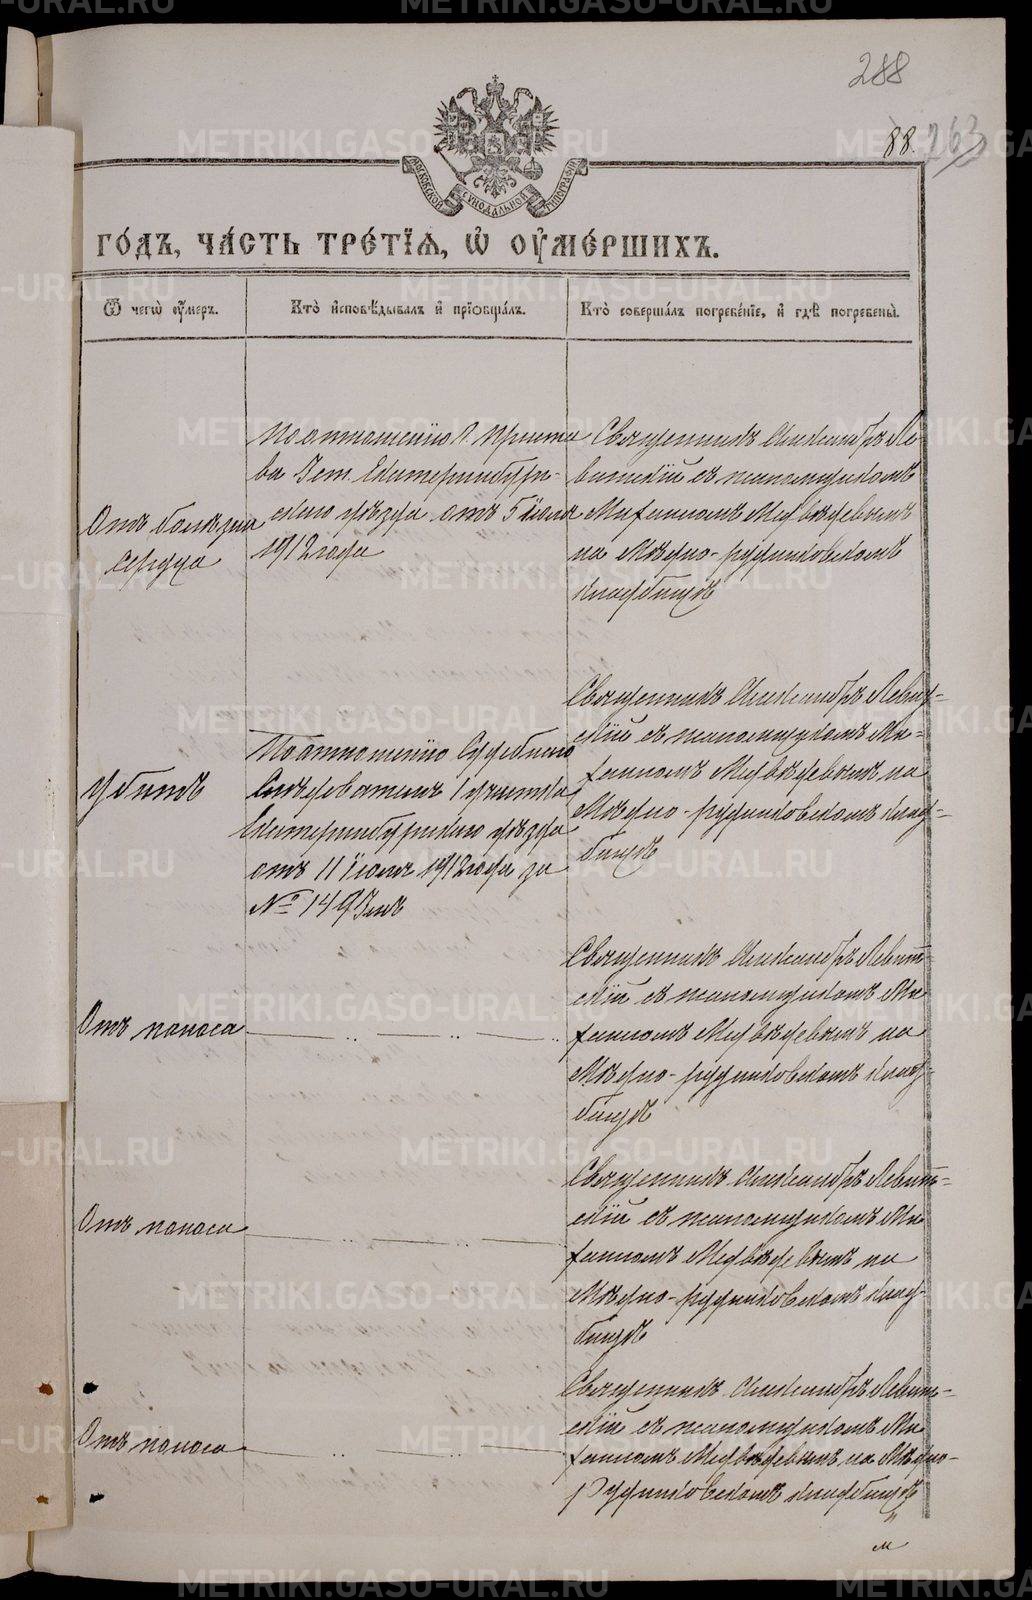 288
88. 263
МОСКОВСКОЙ СѴНОДАЛЬНОЙ ТИПОГРАФІИ
ГО́ДЪ, ЧА́СТЬ ТРЕ́ТІѦ, Ѡ҆ ОУ҆МЕ́РШИХЪ.
Ѿ чегѡ̀ оу҆́меръ.
Кто̀ и҆сповѣ́дывалъ и҆ прїѡбща́лъ.
Кто̀ соверша́лъ погребе́нїе, и҆ гдѣ̀ погребены̀.
Отъ болѣзни
сердца
По отношенію г. Приста
ва 3 ст. Екатеринбург-
скаго уѣзда отъ 5 іюля
1912 года
Священникъ Александръ Ле-
витскій съ псаломщикомъ
Михаиломъ Медвѣдевымъ
на Мѣдно-рудниковскомъ
кладбищѣ
Убитъ
По отношенію Судебнаго
Слѣдователя 1 участка
Екатеринбургскаго уѣзда
отъ 11 іюля 1912 года за
№ 1493
Священникъ Александръ Левит-
скій съ псаломщикомъ Ми-
хаиломъ Медвѣдевымъ на
Мѣдно-рудниковскомъ клад-
бищѣ
Отъ поноса
Священникъ Александръ Левит-
скій съ псаломщикомъ Ми-
хаиломъ Медвѣдевымъ на
Мѣдно-рудниковскомъ клад-
бищѣ
Отъ поноса
Священникъ Александръ Левит-
скій съ псаломщикомъ Ми-
хаиломъ Медвѣдевымъ на
Мѣдно-рудниковскомъ клад-
бищѣ
Отъ поноса
Священникъ Александръ Левит-
скій съ псаломщикомъ Ми-
хаиломъ Медвѣдевымъ на Мѣдно-
Рудниковскомъ кладбищѣ
METRIKI.GASO-URAL.RU